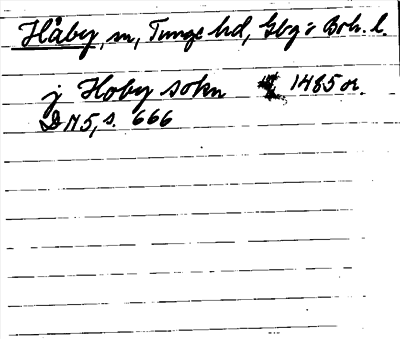 Håby, sn, Tunge hd, Gbg o Boh. l.
j Hoby sokn 1485 or.
DN 5, s. 666